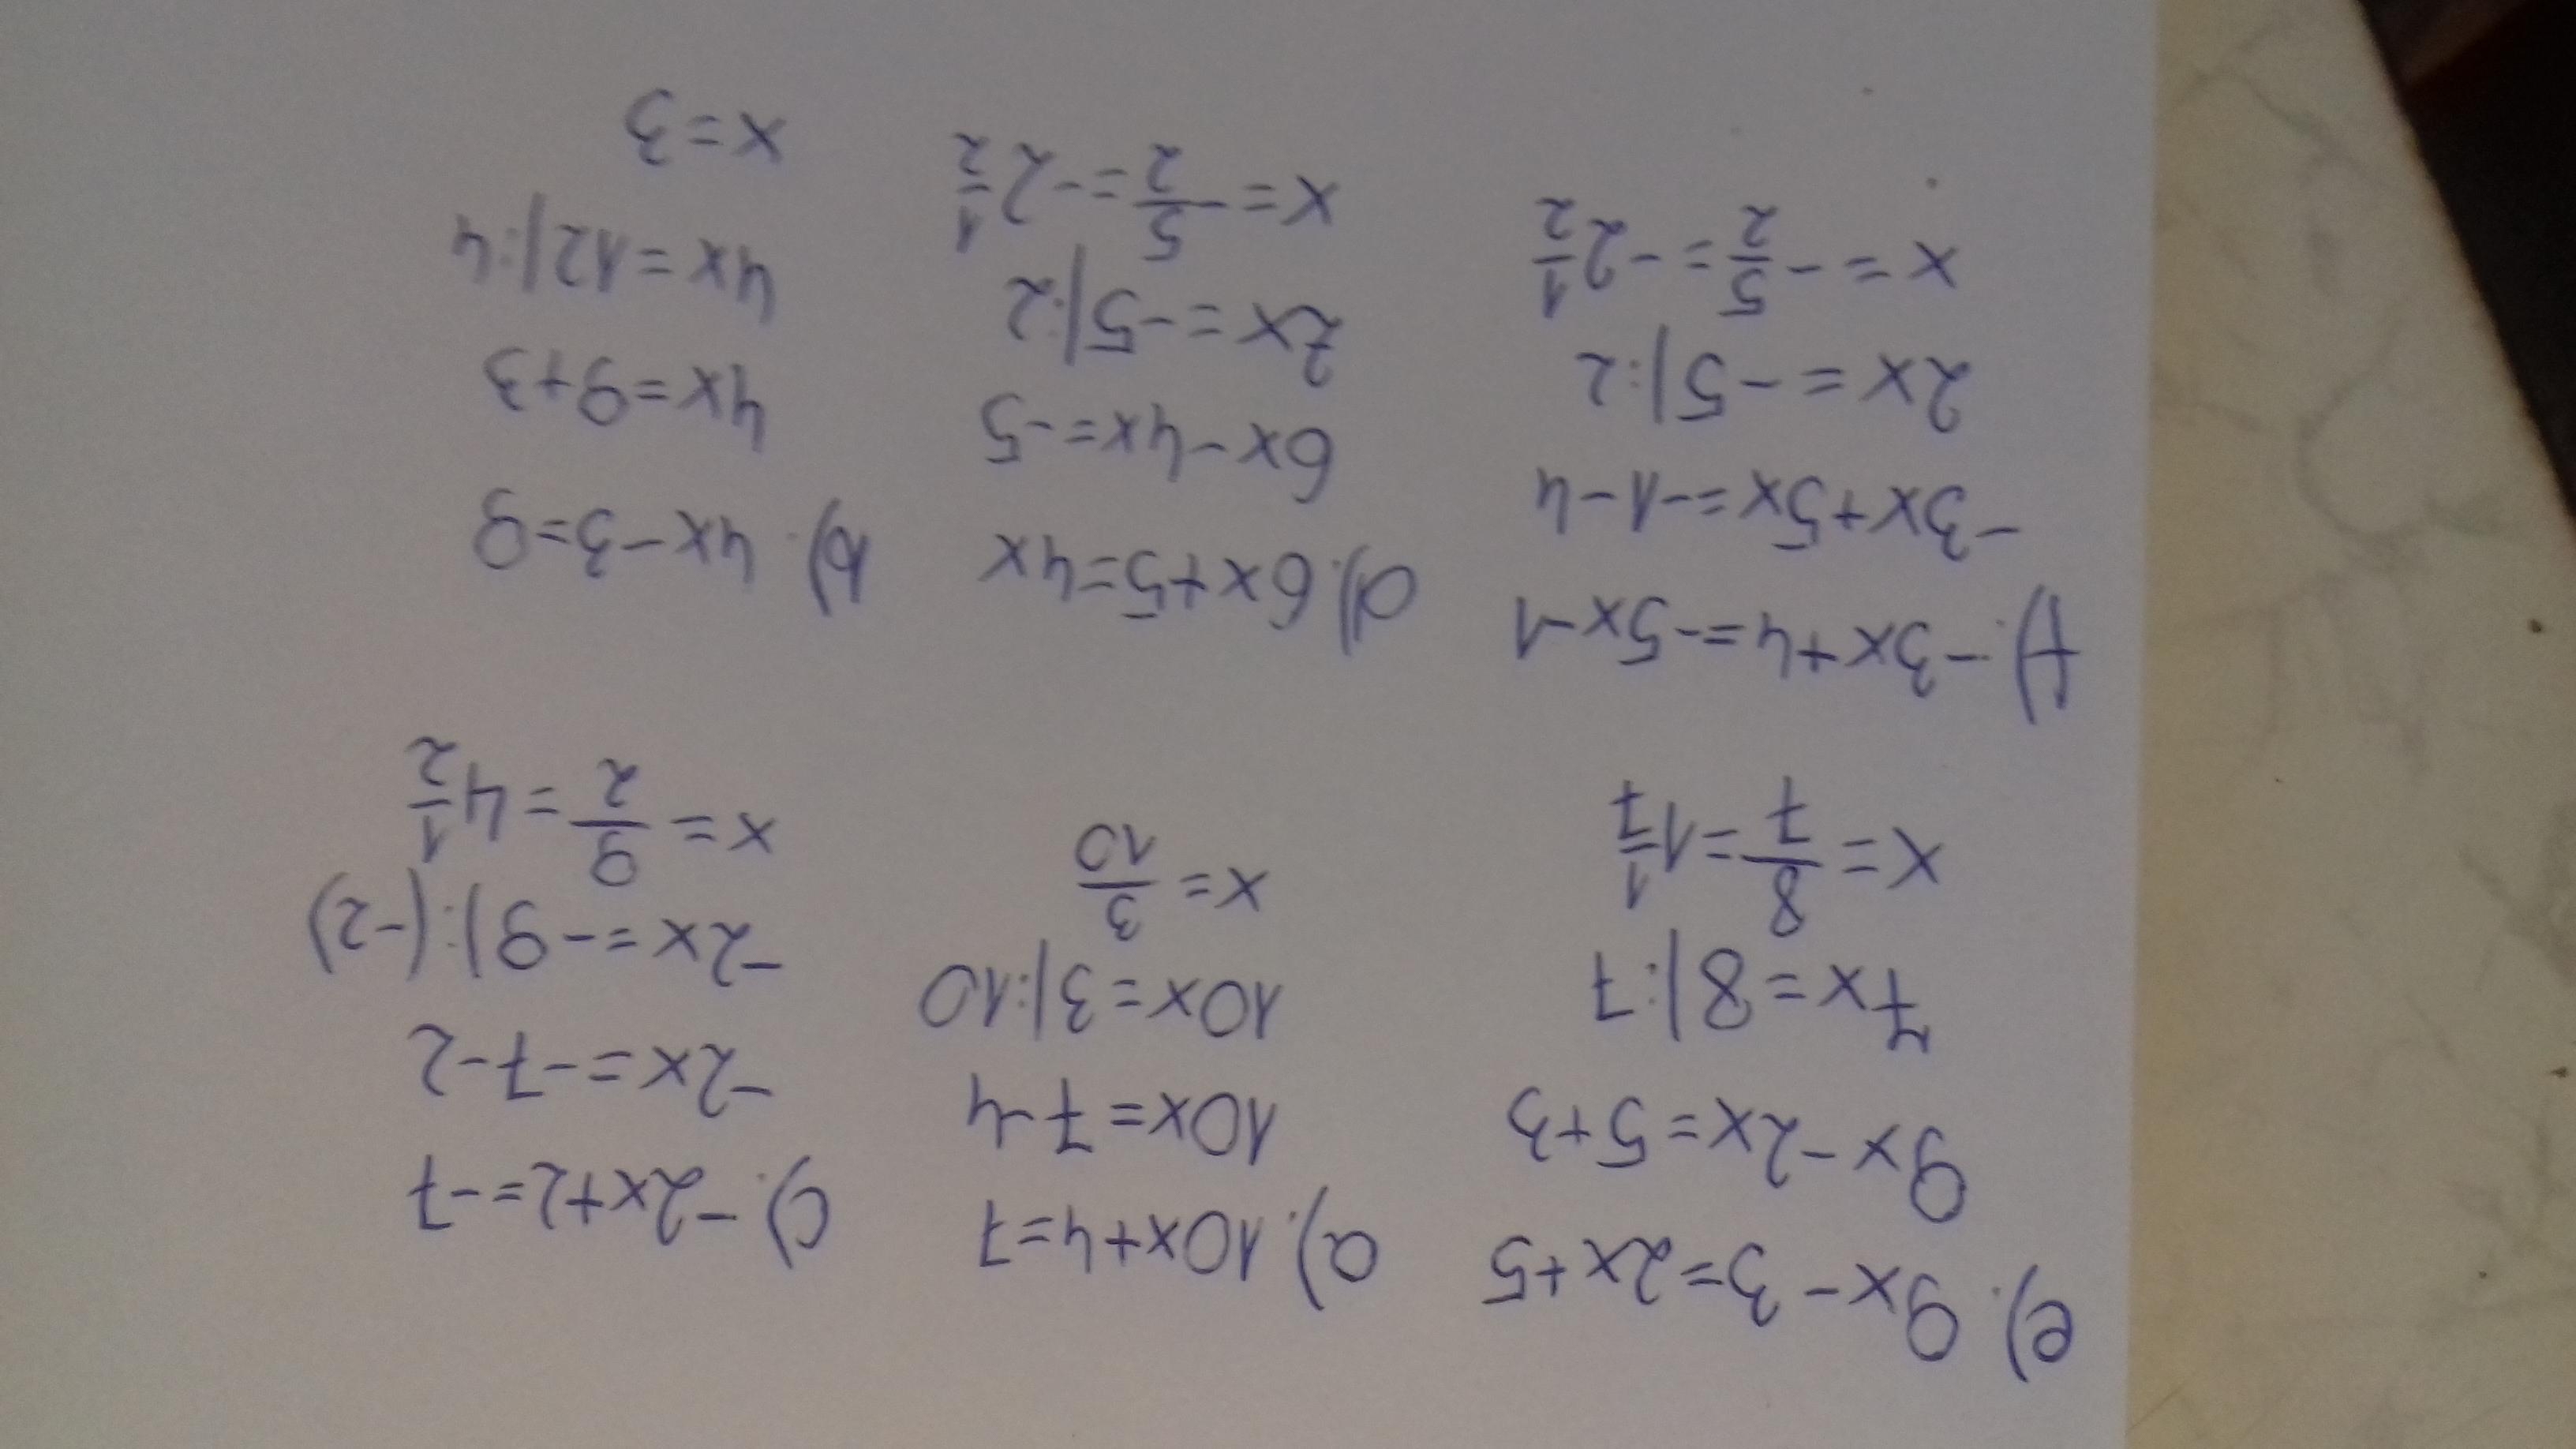 e) 9x-3=2x+5
9x-2x=5+3
7x=8|:7
x=8/7=1 1/7
a) 10x+4=7
10x=7-4
10x=3|:10
x=3/10
c) -2x+2=-7
-2x=-7-2
-2x=-9|:(-2)
x=9/2=4 1/2
f) -3x+4=-5x-1
-3x+5x=-1-4
2x=-5|:2
x=-5/2=-2 1/2
d) 6x+5=4x
6x-4x=-5
2x=-5|:2
x=-5/2=-2 1/2
b) 4x-3=9
4x=9+3
4x=12|:4
x=3